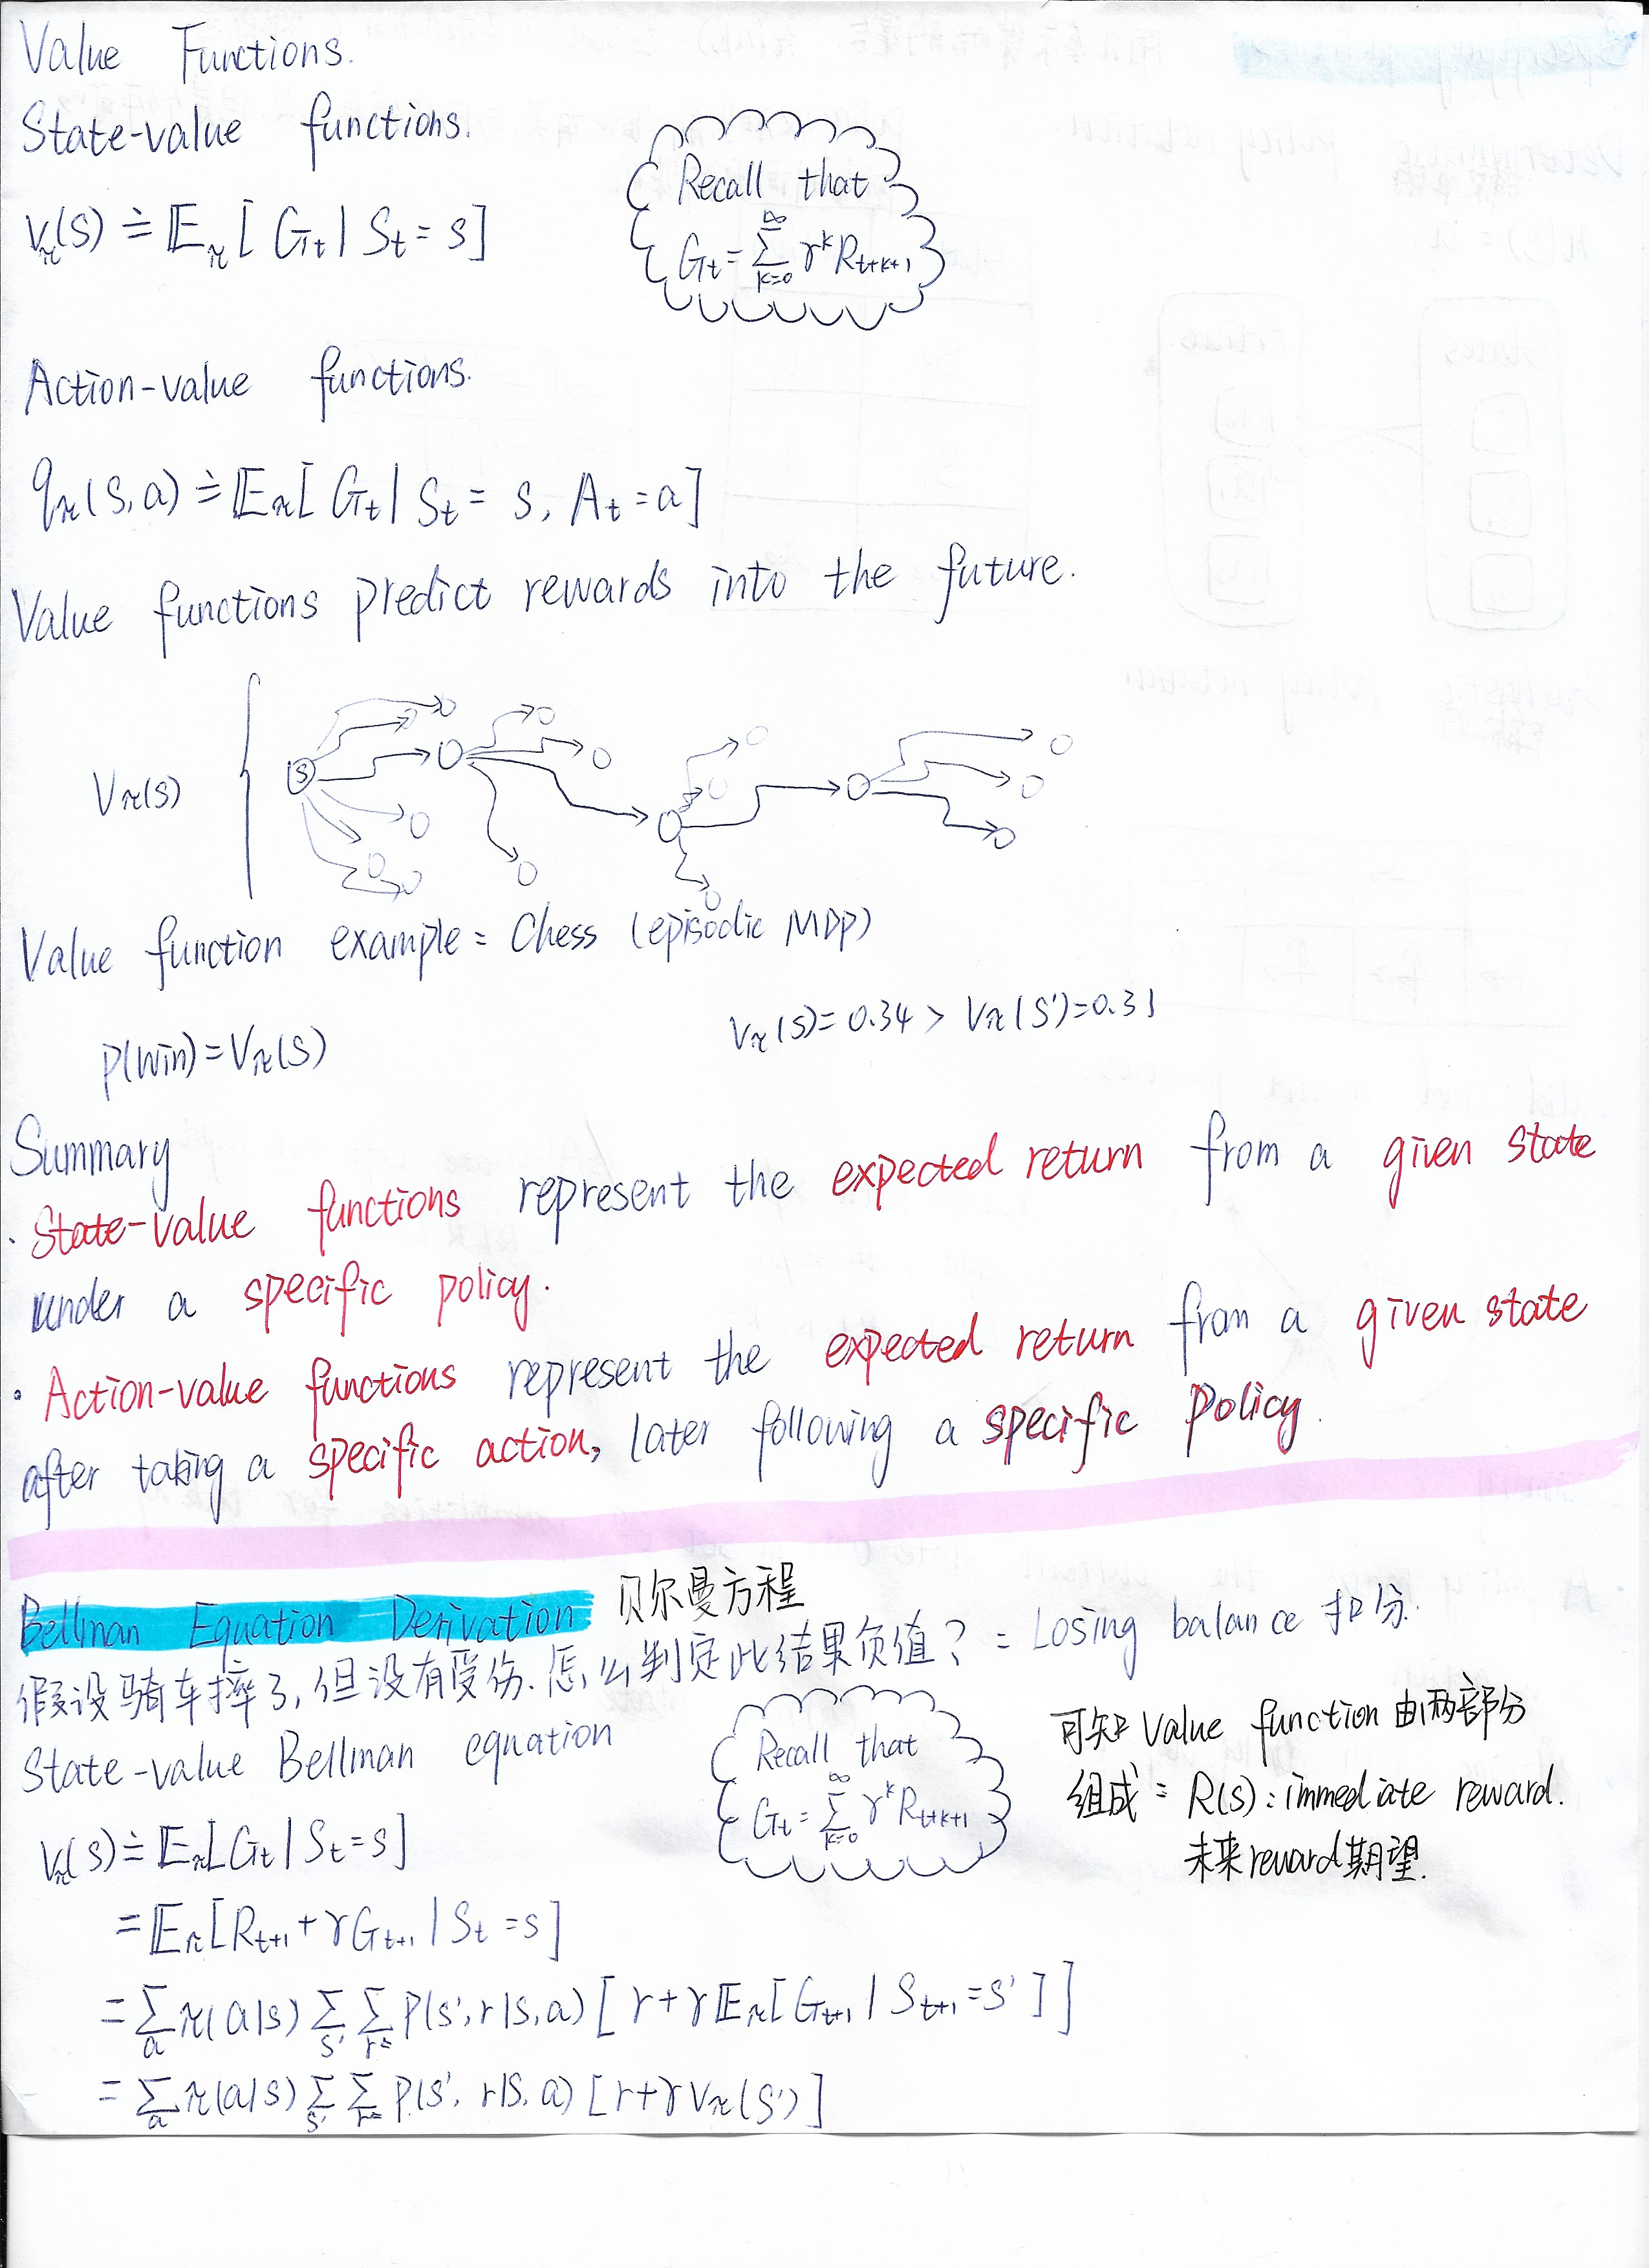 Value Functions.
State-value functions.
Vπ(s) ≐ 𝔼π[Gt | St = s]
Recall that
Gt = ∑_{k=0}^{∞} γ^k R_{t+k+1}
Action-value functions.
qπ(s,a) ≐ 𝔼π[Gt | St = s, At = a]
Value functions predict rewards into the future.
Vπ(s)
S
Value function example: Chess (episodic MDP)
P(win) = Vπ(s)
Vπ(s) = 0.34 > Vπ(s') = 0.31
Summary
· State-value functions represent the expected return from a given state
under a specific policy.
· Action-value functions represent the expected return from a given state
after taking a specific action, later following a specific policy.
Bellman Equation Derivation 贝尔曼方程
假设骑车摔了,但没有受伤.怎么判定此结果负值? = Losing balance 扣分.
State-value Bellman equation
Recall that
Gt = ∑_{k=0}^{∞} γ^k R_{t+k+1}
可知 Value function 由两部分
组成: R(s): immediate reward.
未来reward期望.
Vπ(s) ≐ 𝔼π[Gt | St = s]
= 𝔼π[R_{t+1} + γG_{t+1} | St = s]
= ∑_a π(a|s) ∑_{s'} ∑_r P(s', r|s, a) [r + γ𝔼π[G_{t+1} | S_{t+1} = s']]
= ∑_a π(a|s) ∑_{s'} ∑_r P(s', r|s, a) [r + γVπ(s')]